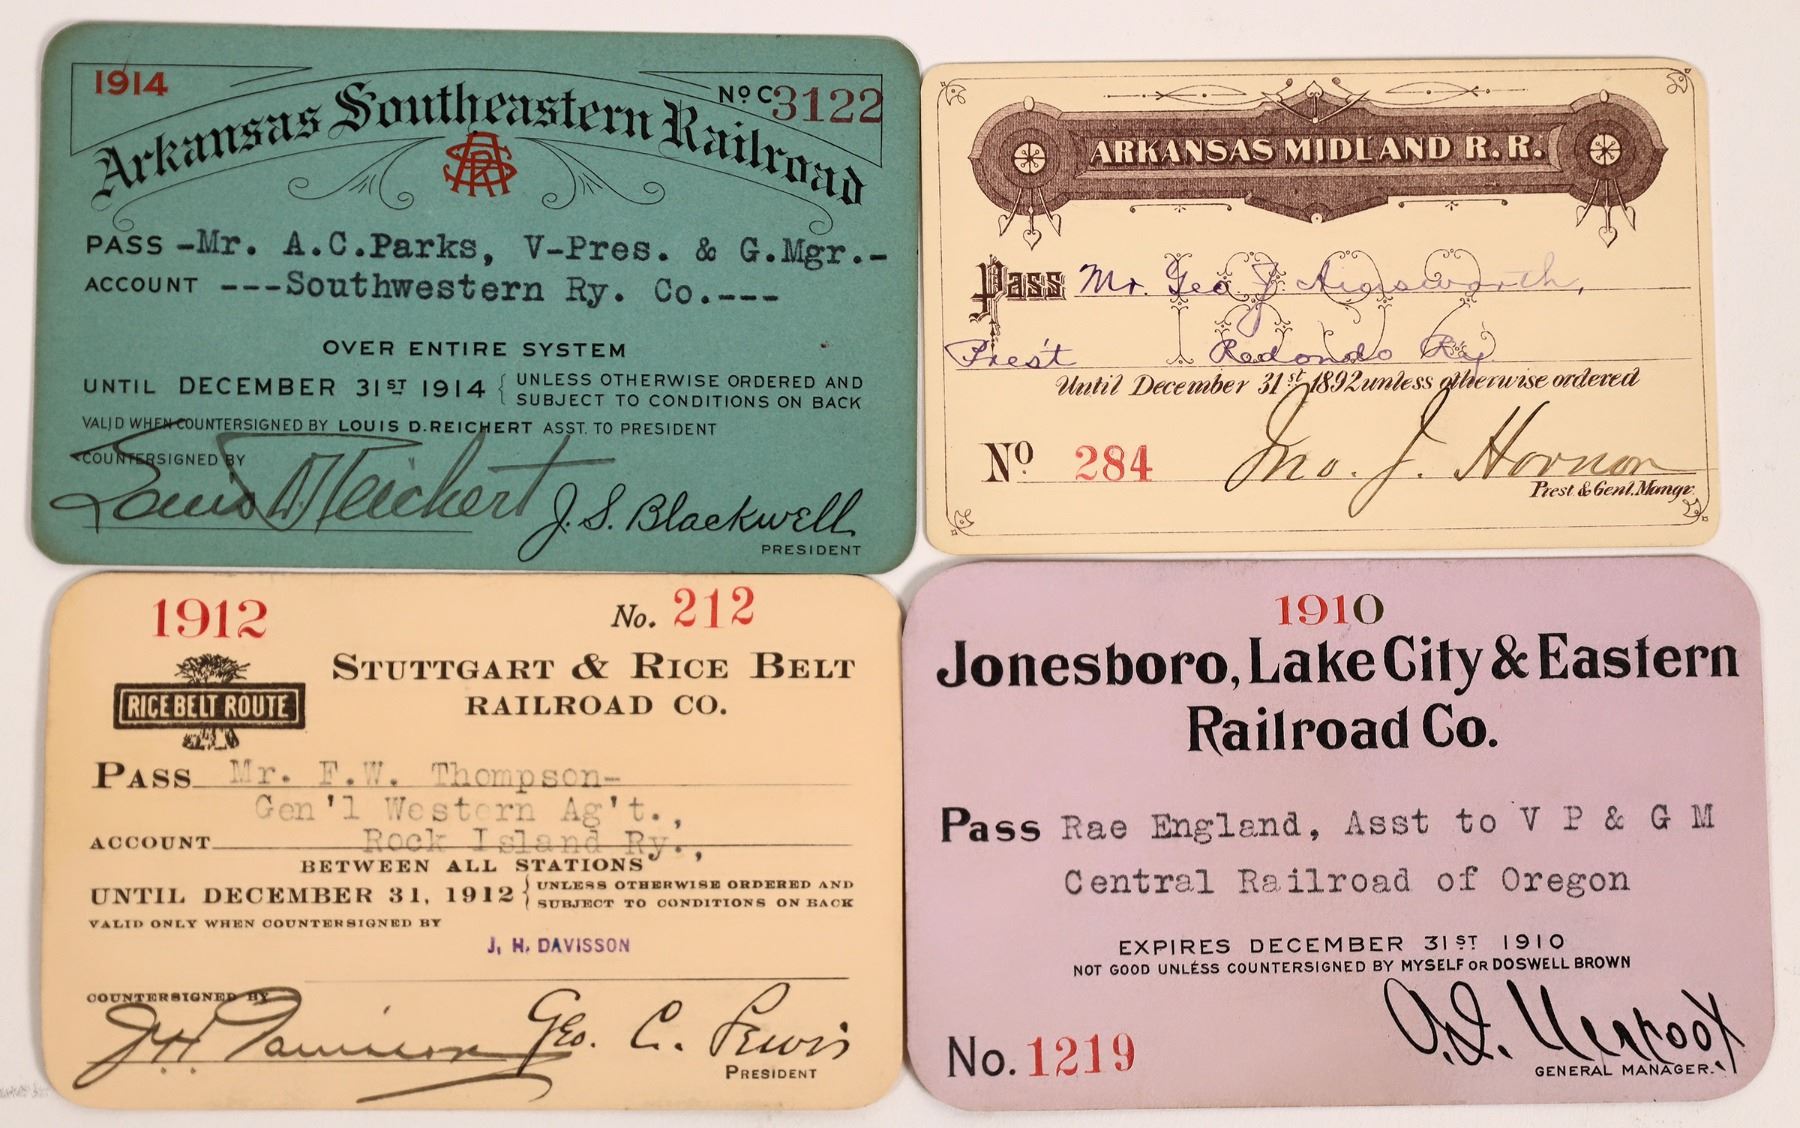 1914
No C3122
Arkansas Southeastern Railroad
PASS -Mr. A.C.Parks, V-Pres. & G.Mgr.-
ACCOUNT ---Southwestern Ry. Co.---
OVER ENTIRE SYSTEM
UNTIL DECEMBER 31ST 1914 { UNLESS OTHERWISE ORDERED AND
SUBJECT TO CONDITIONS ON BACK
VALID WHEN COUNTERSIGNED BY LOUIS D. REICHERT ASST. TO PRESIDENT
COUNTERSIGNED BY
Louis D. Reichert
J. S. Blackwell
PRESIDENT
ARKANSAS MIDLAND R. R.
1892
Pass Mr. Geo. J. Ainsworth,
Pres't Redondo Ry.
Until December 31st 1892 unless otherwise ordered
No 284
Jno. J. Hornor
Prest & Genl. Mangr.
1912
No. 212
RICE BELT ROUTE
STUTTGART & RICE BELT
RAILROAD CO.
PASS Mr. F.W. Thompson-
Gen'l Western Ag't.,
ACCOUNT Rock Island Ry.,
BETWEEN ALL STATIONS
UNTIL DECEMBER 31, 1912 { UNLESS OTHERWISE ORDERED AND
SUBJECT TO CONDITIONS ON BACK
VALID ONLY WHEN COUNTERSIGNED BY
J. H. DAVISSON
COUNTERSIGNED BY
J. H. Davisson
Geo. C. Lewis
PRESIDENT
1910
Jonesboro, Lake City & Eastern
Railroad Co.
Pass Rae England, Asst to V P & G M
Central Railroad of Oregon
EXPIRES DECEMBER 31ST 1910
NOT GOOD UNLESS COUNTERSIGNED BY MYSELF OR DOSWELL BROWN
No. 1219
GENERAL MANAGER.